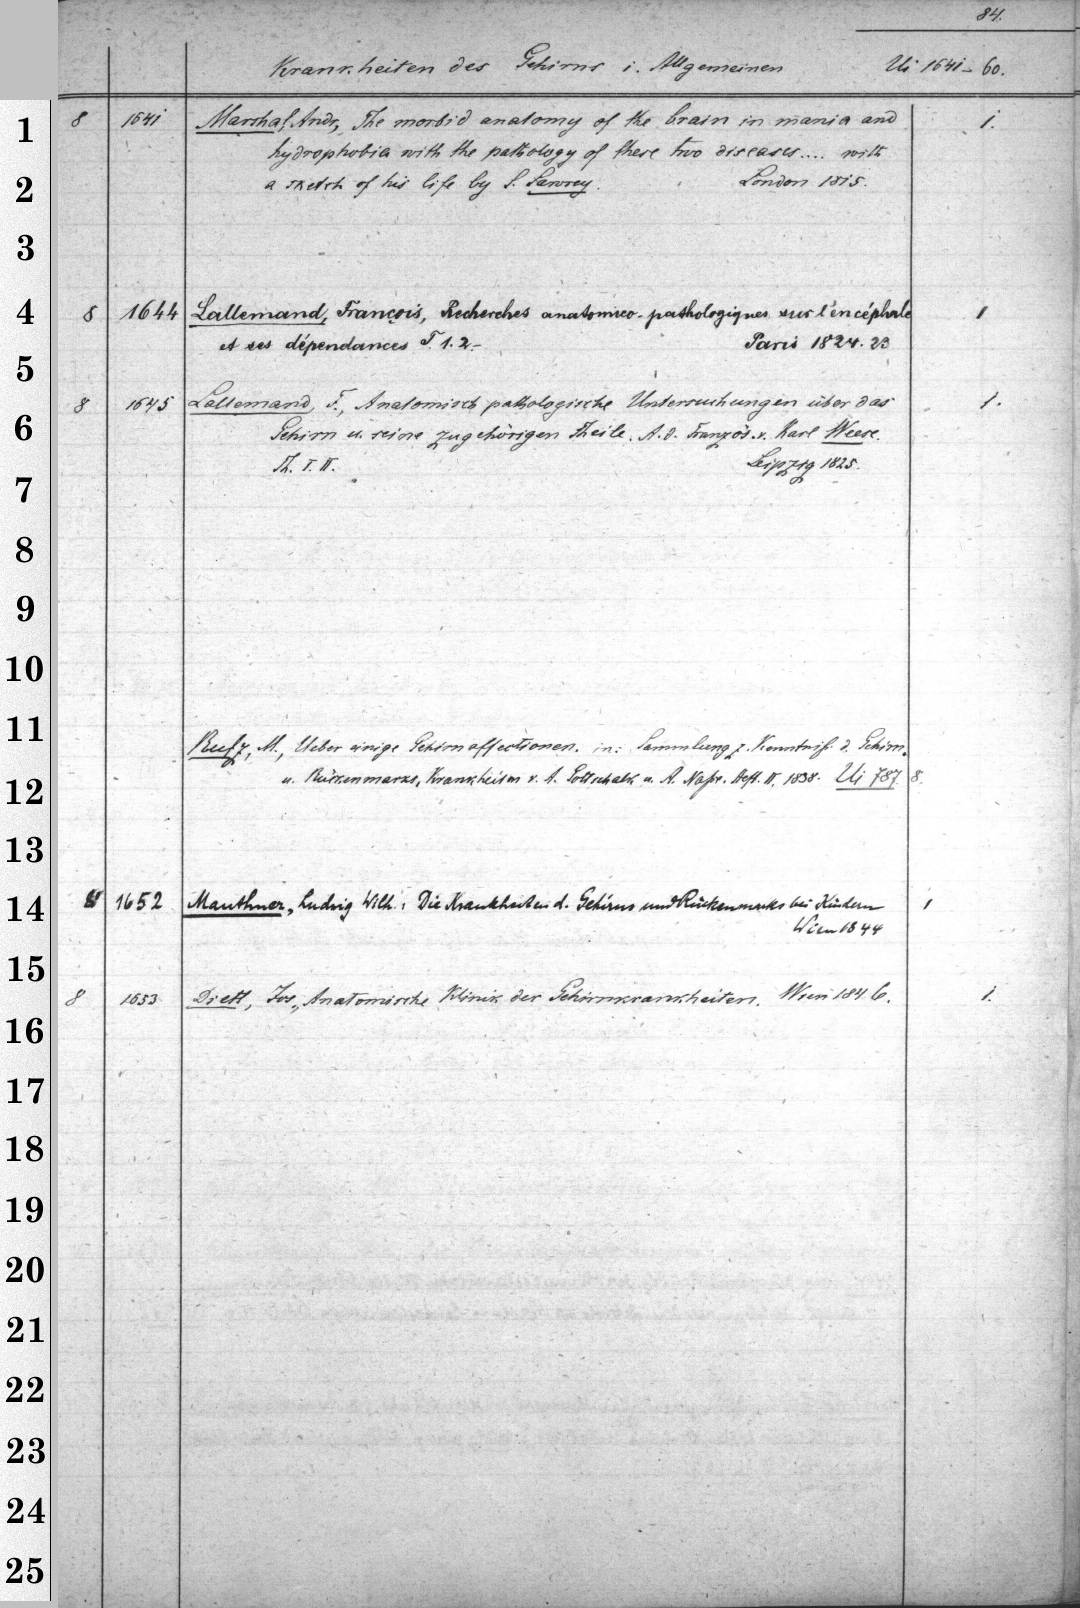 84.
Krankheiten des Gehirns i. Allgemeinen Ui 1641-60.
8 1641 Marshal, Andr., The morbid anatomy of the brain in mania and 1.
hydrophobia with the pathology of these two diseases.... with
a sketch of his life by S. Sawrey. London 1815.
8 1644 Lallemand, François, Recherches anatomico-pathologiques sur l'encéphale 1
et ses dépendances T. 1.2.- Paris 1824. 23
8 1645 Lallemand, F., Anatomisch pathologische Untersuchungen über das 1.
Gehirn u. seine zugehörigen Theile. A. d. Französ. v. Karl Weese.
Th. I. II. Leipzig 1825.
Rufz, M., Ueber einige Gehirnaffectionen. in: Sammlung z. Kenntniß d. Gehirn-
u. Rückenmarks, Krankheiten v. A. Gottschalk u. A. Nasse. Heft. II, 1838. Ui 787. 8.
8 1652 Mauthner, Ludwig Wilh.: Die Krankheiten d. Gehirns und Rückenmarks bei Kindern 1
Wien 1844
8 1653 Dietl, Jos., Anatomische Klinik der Gehirnkrankheiten. Wien 1846. 1.
1
2
3
4
5
6
7
8
9
10
11
12
13
14
15
16
17
18
19
20
21
22
23
24
25